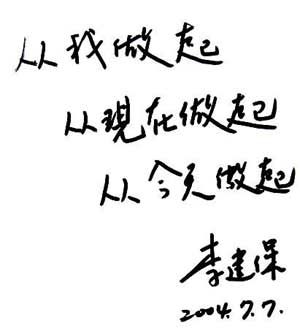 从我做起
从現在做起
从今天做起
李建保
2004.7.7.